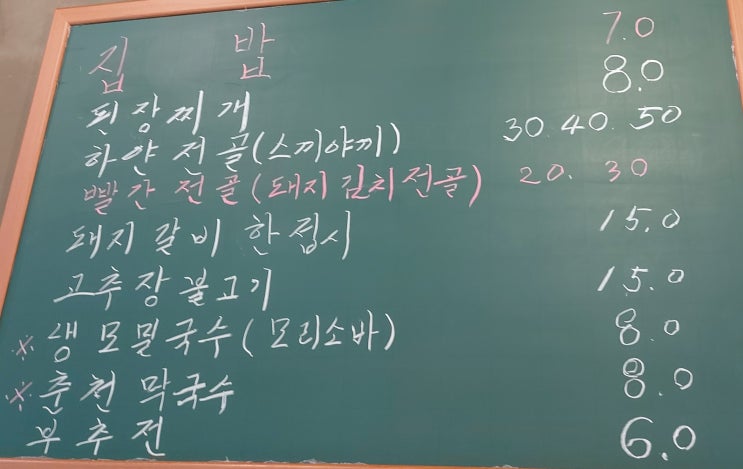 집 밥 7.0
된장찌개 8.0
하얀 전골(스끼야끼) 30.40.50
빨간 전골(돼지김치전골) 20. 30
돼지갈비 한접시 15.0
고추장불고기 15.0
※ 생모밀국수(모리소바) 8.0
※ 춘천막국수 8.0
부추전 6.0